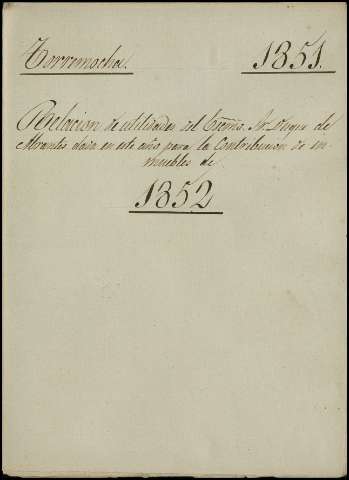 Torremocha. 1851.
Relacion de utilidades del Exĉmo. Sr. Duque de
Abrantes dada en este año para la Contribucion de in-
muebles de
1852